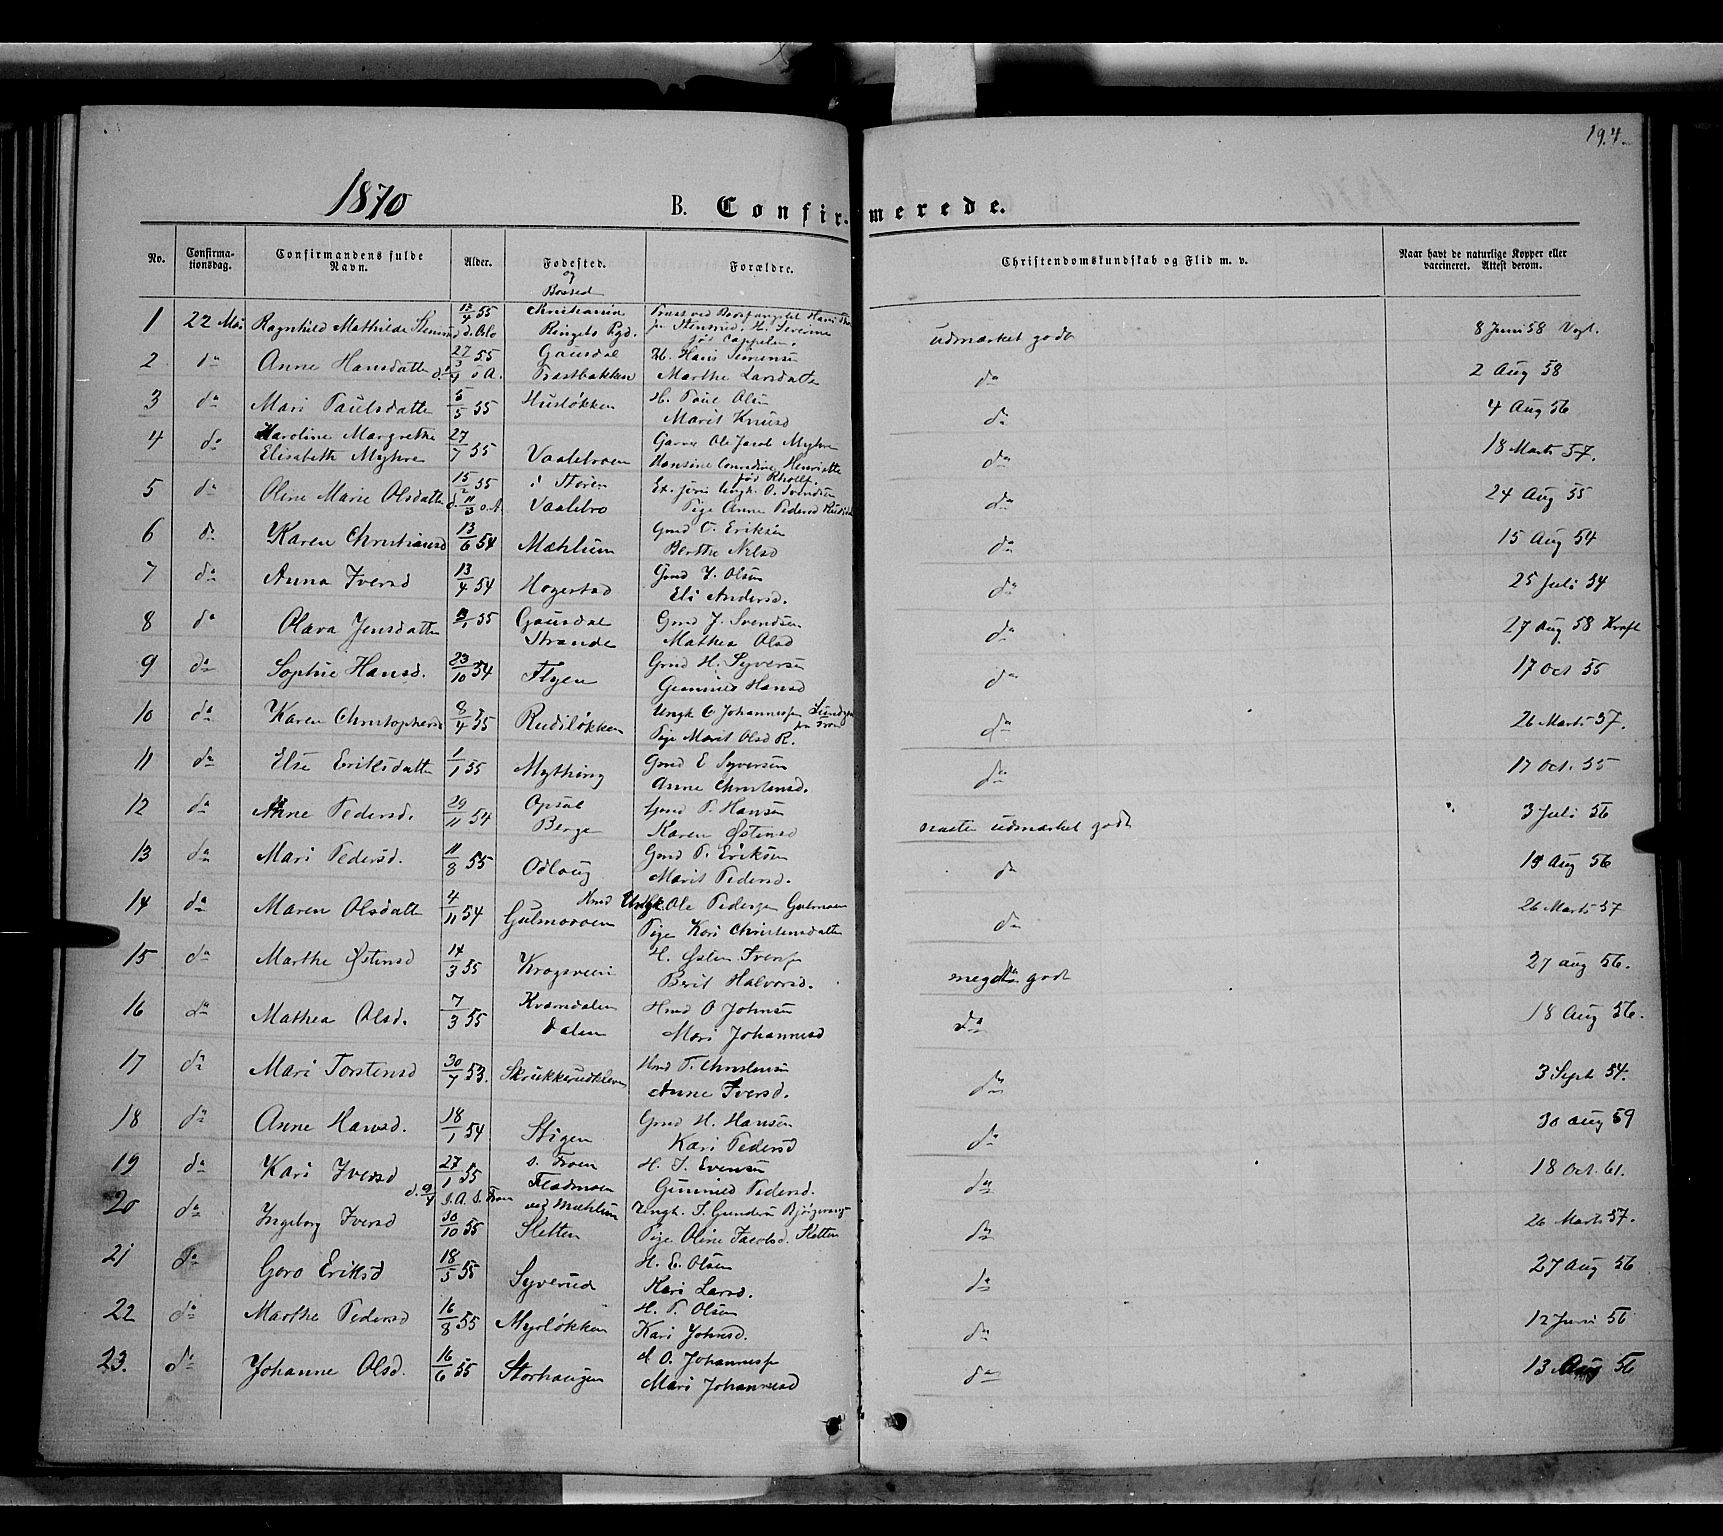 194
1870
B. Confirmerede.
No. Confirmationsdag. Confirmandens fulde Navn. Alder. Fødested. og Bosted Forældre. Christendomskundskab og Flid m. v. Naar havt de naturlige Kopper eller vaccineret. Attest derom.
1 22 Mai Ragnhild Mathilde 13/4 55 Christiania udmærket godt 8 Juni 58 Vogt.
d. Oslo Ringebo Pgd.
2 do Anne Hansdatter 27/3 55 Gausdal H. Hans Simensen do 2 Aug 58
Trøstbakken Marthe Larsdatter
3 do Mari Paulsdatter 5/5 55 Husløkken H. Paul Olsen do 4 Aug 56
Marit Knusd
4 do Karoline Margrethe 27/7 55 Vaalebroen Garver Ole Jacob Myhre do 18 Marts 57.
Elisabeth Myhre Hansine Conradine Henriette
5 do Oline Marie Olsdatter 15/2 55 i Støren do 24 Aug 55
d. 11/3 Vaalebro Pige Anne Pedersd
6 do Karen Christiansd 13/6 54 Mæhlum Gmd C. Eriksen do 15 Aug 54
Berthe Nilsd
7 do Anna Iversd 13/4 54 Hogerstad Gmd I. Olsen do 25 Juli 54
Eli Andersd.
8 do Olava Jensdatter 55 Gausdal Gmd J. Svendsen do 27 Aug 58 Kraft
Strande Mathea Olsd
9 do Sophie Hansd. 23/10 54 Flyen Gmd H. Syversen do 17 Oct 55
Gunnild Hansd
10 do Karen Christophersd 8/4 55 Rudsløkken Ungk C Johannessen do 26 Marts 57.
Pige Marit Olsd R.
11 do Else Eriksdatter 1/1 55 Mytting Gmd E Syversen do 17 Oct. 55
Anne Christensd.
12 do Anne Pedersd. 29/11 54 Opsal Gmd P. Hansen næsten udmærket godt 3 Juli 56
Berge Karen Østensd
13 do Mari Pedersd. 11/8 55 Odloug Gmd P. Eriksen do 19 Aug 56
Marit Pedersd.
14 do Maren Olsdatter 4/11 54 Gulmoroen Ungk. Ole Pedersen do 26 Marts 57
Pige Kari Christensdatter
15 do Marthe Østensd 14/3 55 Krogsveen H. Østen Iversen meget godt 27 aug 56.
Berit Halvorsd.
16 do Mathea Olsd. 7/3 55 Kvarndalen Hmd O Johnsen do 18 Aug 56.
Dalen Mari Johannesd
17 do Mari Torstensd 30/7 53. Skrukkerudkleven Hmd T. Christensen do 3 Sept 54.
Anne Iversd.
18 do Anne Hansd. 18/1 54 Stigen Gmd H. Hansen do 30 aug 59
Kari Pedersd
19 do Kari Iversd 27/1 55 s. Froen H. I. Evensen do 18 Oct. 61.
Fladmoen Gunnild Pedersd.
20 do Ingeborg Iversd 30/10 55 ved Mæhlum Ungk. I. Gundersen do 26 Marts 57.
Sletten Pige Oline Jacobsd. Sletten
21 do Goro Eriksd 18/5 55 Syverud H. E. Olsen do 27 Aug 56
Kari Larsd.
22 do Marthe Pedersd 16/8 55 Myrløkken H. P. Olsen do 12 Juni 56
Kari Johnsd.
23. do Johanne Olsd. 16/6 55 Storhaugen H O. Johannessen do 13 Aug 56
Mari Johannesd